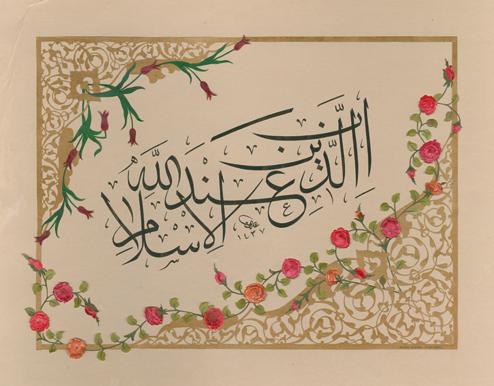 إن الدين عند الله الإسلام
١٤٣٧